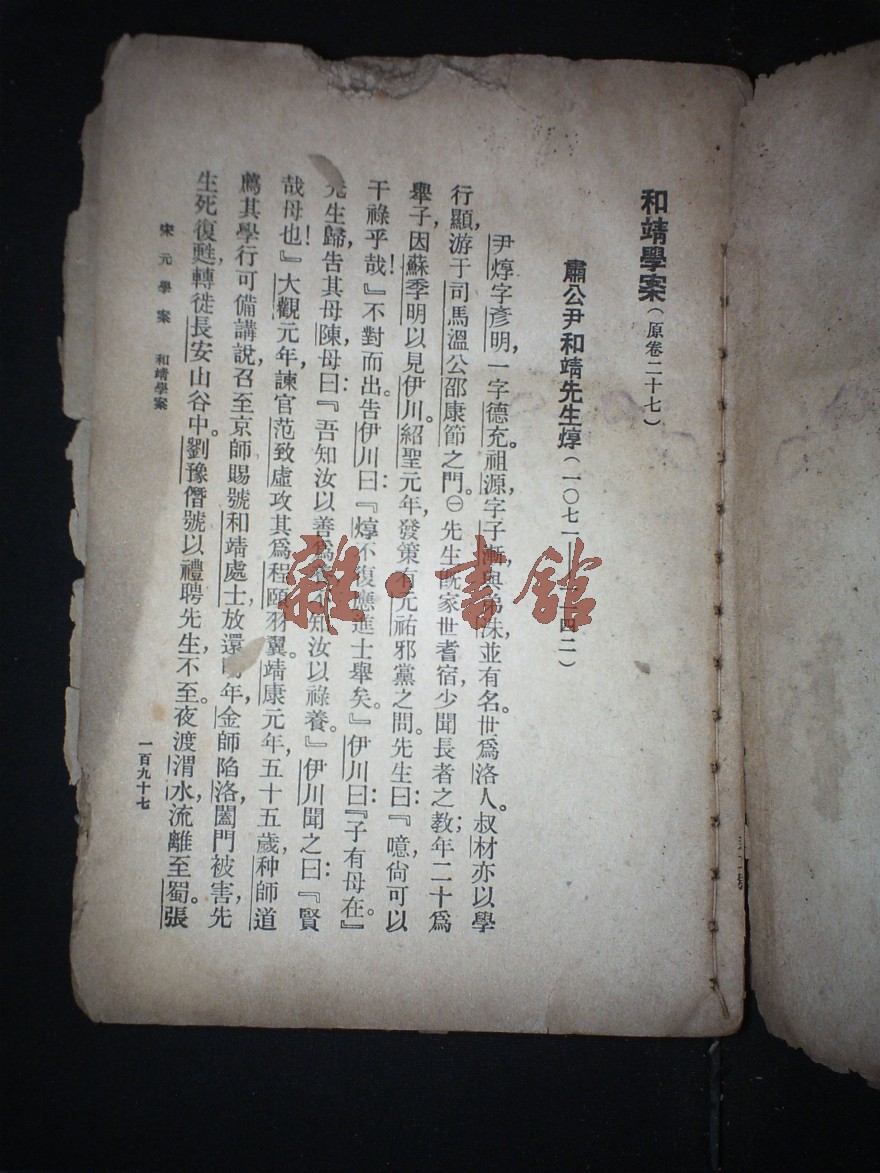 和靖學案（原卷二十七）
肅公尹和靖先生焞（一〇七一——一一四二）
尹焞，字彥明，一字德充。祖源，字子漸，與弟洙，並有名。世爲洛人。叔材亦以學
行顯，游于司馬溫公邵康節之門。㊀先生旣家世耆宿，少聞長者之敎；年二十爲
舉子，因蘇季明以見伊川。紹聖元年，發策有元祐邪黨之問。先生曰：『噫，尙可以
干祿乎哉！』不對而出。告伊川曰：『焞不復應進士舉矣。』伊川曰：『子有母在。』
先生歸，告其母陳。母曰：『吾知汝以善爲養，不知汝以祿養。』伊川聞之曰：『賢
哉母也！』大觀元年，諫官范致虛攻其爲程頤羽翼。靖康元年，五十五歲，种師道
薦其學行可備講說，召至京師，賜號和靖處士放還。明年，金師陷洛，闔門被害，先
生死復甦，轉徙長安山谷中。劉豫僭號以禮聘先生，不至。夜渡渭水，流離至蜀。張
宋元學案 和靖學案
一百九十七
雜·書館